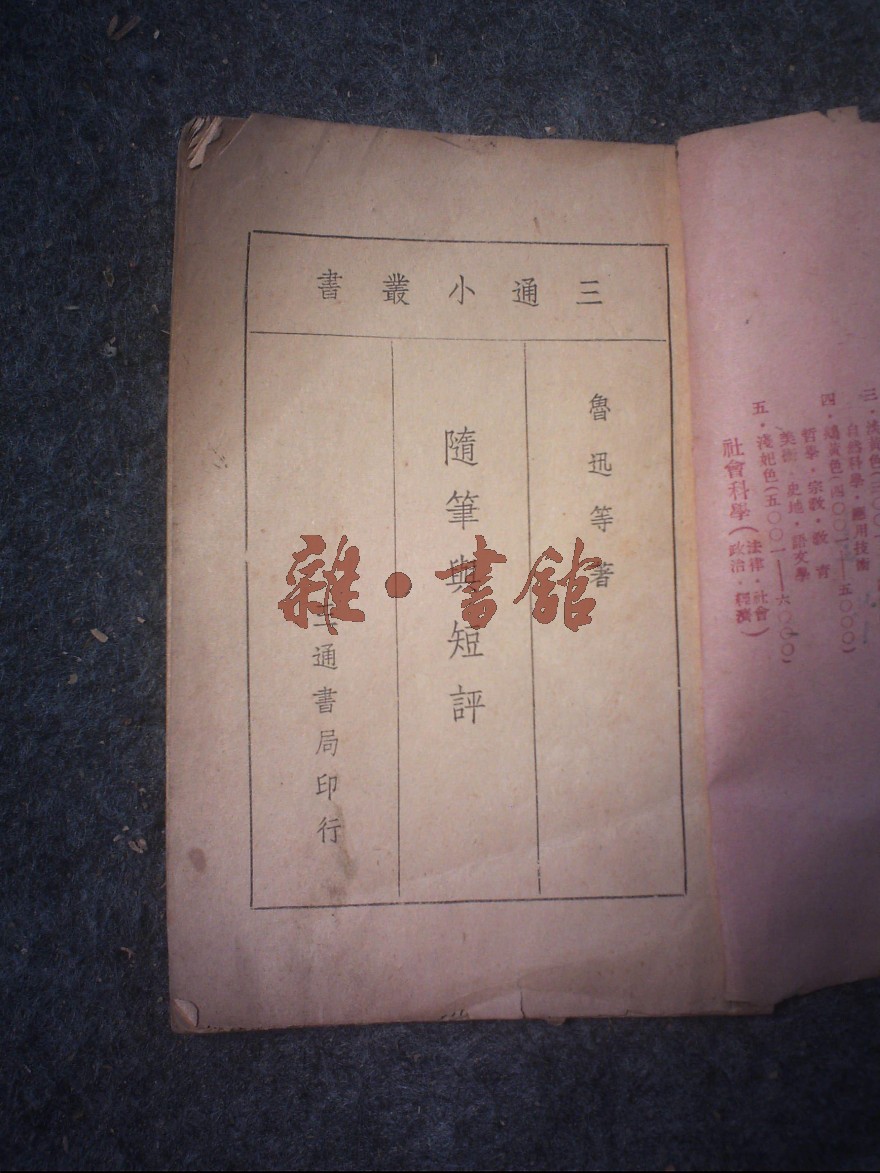 三通小叢書
魯迅等著
隨筆與短評
三通書局印行
雜·書館
自然科學·應用技術
四·橘黃色(四〇〇一——五〇〇〇)
哲學·宗教·教育
美術·史地·語文學
五·淺妃色(五〇〇一——六〇〇〇)
社會科學(法律·社會
政治·經濟)